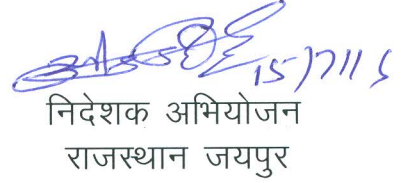 15/7/15
निदेशक अभियोजन
राजस्थान जयपुर